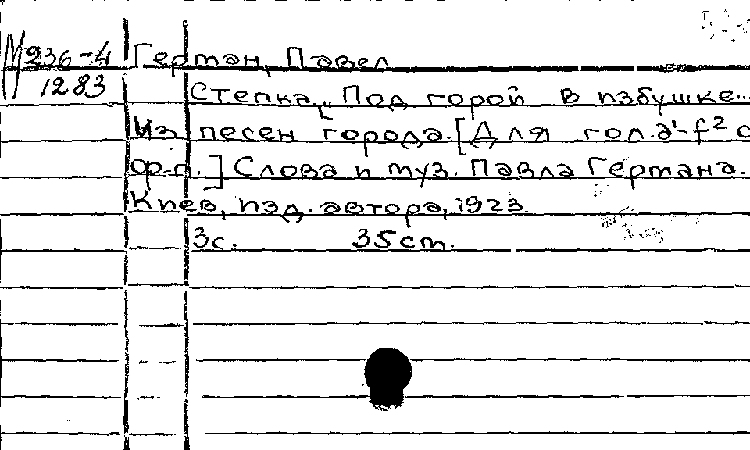 М 236-4 Гертан, Павел
1283 Степка, „Под горой в избушке...
Из песен города [Для гол. a¹-f² с
ф-п.] Слова и муз. Павла Гертана.
Киев, изд. автора, 1923
3с. 35 cm.